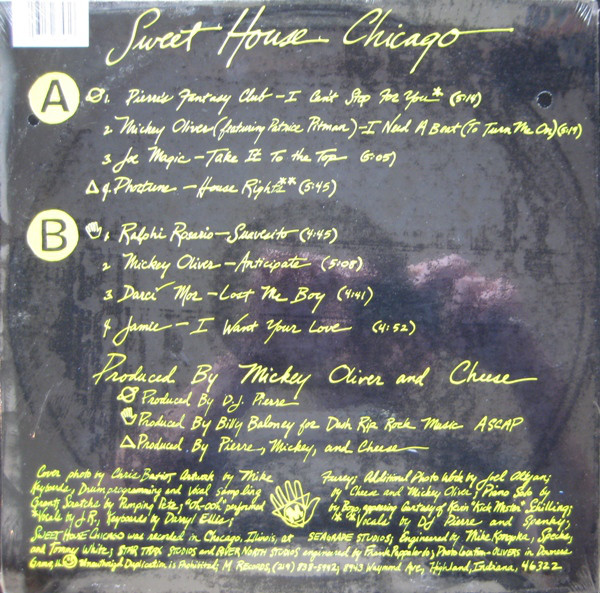 Sweet House Chicago
A
1. Pierre's Fantasy Club - I Can't Stop For You* (5:18)
2 Mickey Oliver (featuring Patrice Pitman) - I Need A Beat (To Turn Me On) (5:17)
3 Joe Magic - Take It To the Top (5:05)
4. Phortune - House Right** (5:45)
B
1. Ralphi Rosario - Suavesito (4:45)
2 Mickey Oliver - Anticipate (5:08)
3 Darcí Mor - Lost Me Boy (4:41)
4. Jamie - I Want Your Love (4:52)
Produced By Mickey Oliver and Cheese
Produced By D.J. Pierre
Produced By Billy Baloney for Dash Rip Rock Music ASCAP
Produced By Pierre, Mickey, and Cheese
Cover photo by Chris Artwork by Mike Additional Photo Work by Joel
Keyboards, Drum programming and Vocal sampling by Cheese and Mickey Oliver; Piano Solo by
Scratches by Pumping Pete, "Ooh-ooh" performed by appearing Courtesy of Kevin
*Vocals by J.R., Keyboards by Daryl Ellis; **Vocals by DJ Pierre and Spanky,
SWEET HOUSE CHICAGO was recorded in Chicago, Illinois, at STUDIOS; Engineered by Mike
and Tommy White; STAR TRAX STUDIOS and RIVER NORTH STUDIOS engineered by Frank Photo Location - OLIVERS in Downers
Grove, IL Unauthorized Duplication is Prohibited; M RECORDS, (219) 838-5992; Ave, Highland, Indiana, 46322